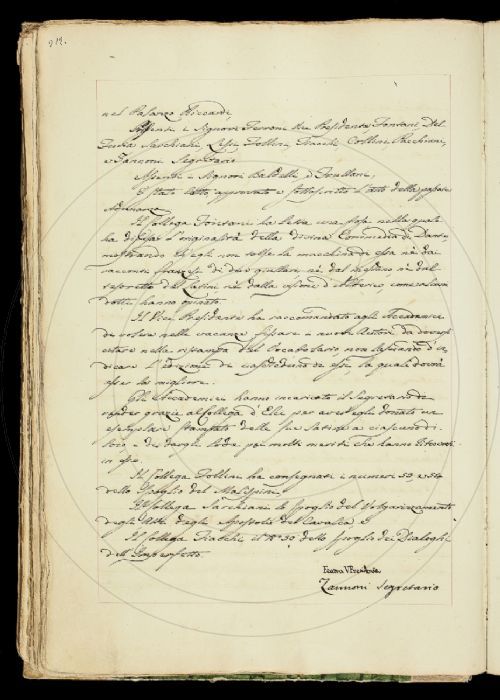 212.
nel Palazzo Riccardi
Presenti i Signori Ferroni Vice Presidente, Fontani, Del
Furia, Sarchiani, Follini, Fiacchi, Collini, Bacchiani,
e Zannoni Segretario
Assenti i Signori Baldelli, d
È stato letto, approvato e sottoscritto l'atto della passata
Adunanza
Il Collega Fontani ha letta una prosa nella quale
ha difesa l'originalità della divina Commedia di Dante
mostrando che egli non tolse la macchina di essa nè dai
racconti francesi di due giullari, nè dal nè dal
del nè dalla visione d'Alberico, come alcuni
dotti hanno opinato.
Il Vice Presidente ha raccomandato agli Accademici
di voler nelle vacanze fissare i nuovi Autori da doversi
citare nella ristampa del Vocabolario, non lasciando d'in-
dicare l'edizione di ciascheduno di essi, la quale dovrà
esser la migliore.
Gli Accademici hanno incaricato il Segretario di
render grazie al Collega d'Elci per aver egli donato un
esemplare stampato delle sue Satire a ciascuno di
loro, e di dargli lode pei molti meriti che hanno
in esse
Il Collega Follini ha consegnati i numeri 53, e 54
dello Spoglio del Malispini,
Il Collega Sarchiani lo Spoglio del Volgarizzamento
degli Atti degli Apostoli del Cavalca e
Il Collega Fiacchi il N.° 30 dello Spoglio dei Dialoghi
dell'Imperfetto.
Zannoni Segretario